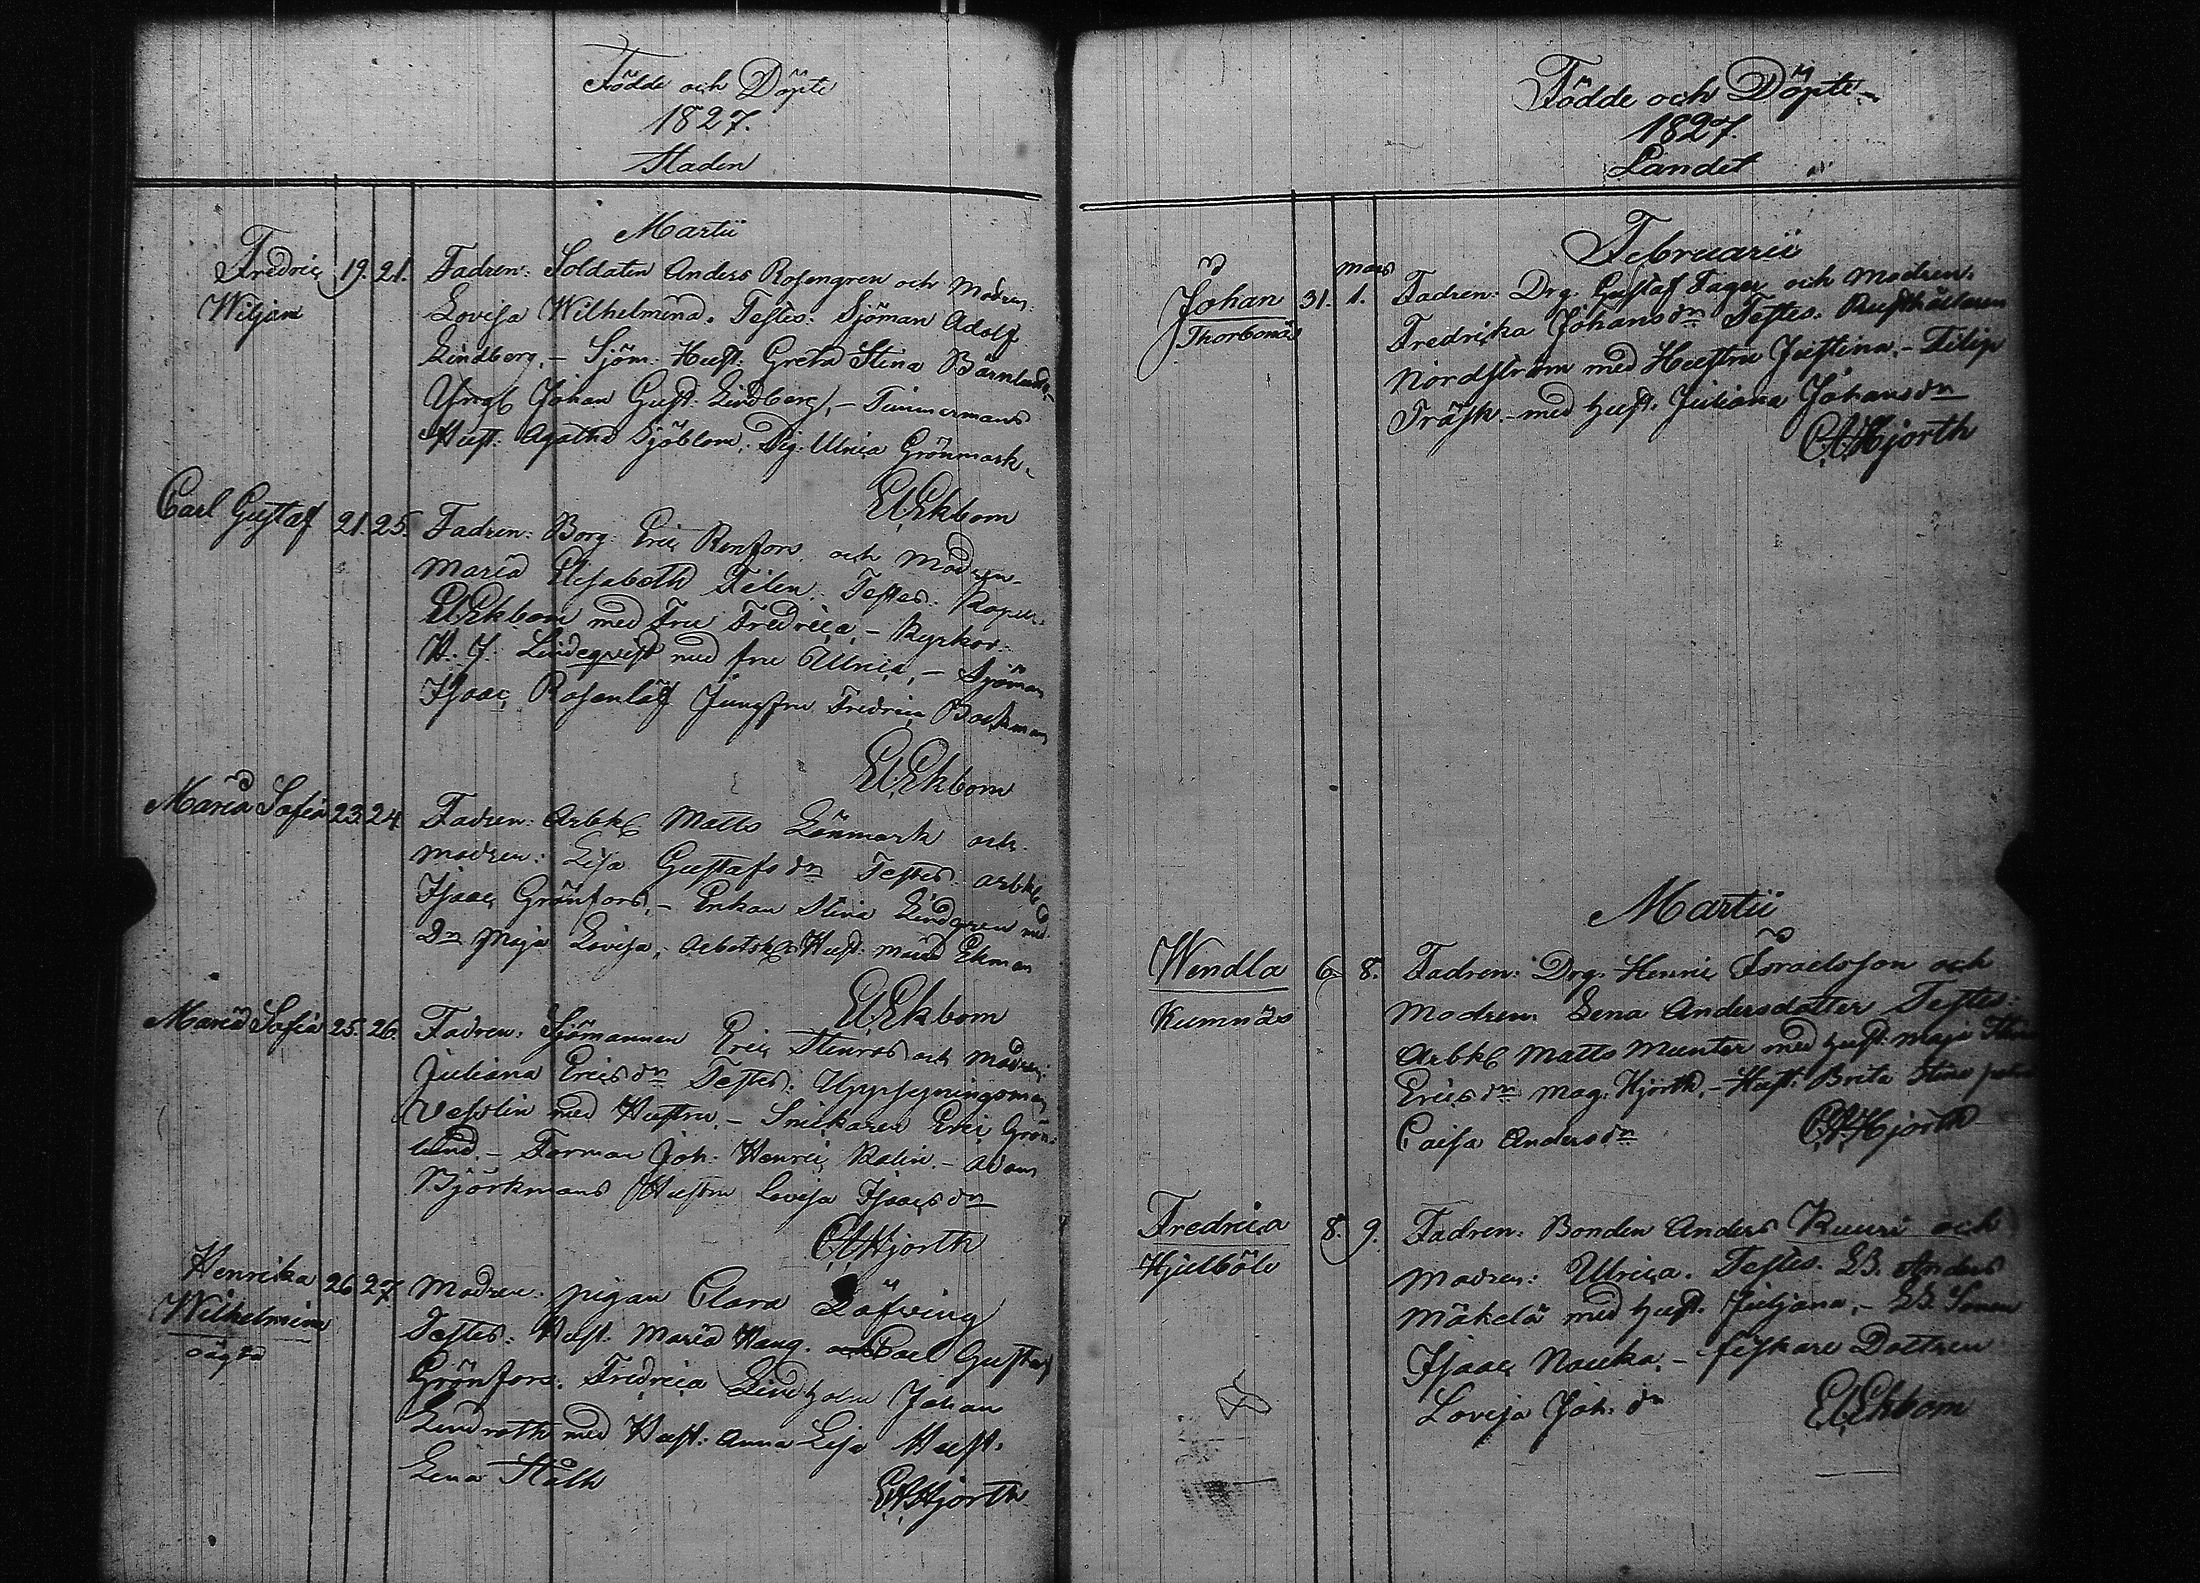 Födde och Döpte
1827.
Staden
Martii
Fredric 19. 21. Fadren: Soldaten Anders Rosengren och Modren:
Wiljam Lovisa Wilhelmina. Testes: Sjöman Adolf
Lindberg. – Sjöm. Hust. Greta Stina Bärnlund, –
Yngl Johan Gust. Lindberg, – Timmermans
Hust: Agatha Sjöblom. Pig. Ulrica Grönmark.
E.Ekbom
Carl Gustaf 21. 25. Fadren: Borg. Eric Renfors och Modren
Maria Elisabeth Telen. Testes: Kapel.
E.Ekbom med Fru Fredrica, – Kyrkoh.
H. J. Lindeqvist med fru Ulrica, – Sjöman
Isaac Rosenlöf Jungfru Fredrica Backman
E.Ekbom
Maria Sofia 23. 24. Fadren: Arbk Matts Lönmark och
modren: Lisa Gustafs dr Testes: arbk
Isaac Grönfors, – Enkan Stina Lindgren med
Dr Maja Lovisa, Arbetsk. Hust: Maria Ekman
E.Ekbom
Maria Sofia 25. 26. Fadren: Sjömannen Eric Stenros och Modren:
Juliana Erics dr Testes: Uppsyningsman
Vesslin med Hustru, – Snickaren Eric Grön-
lund. – Forman Joh. Henric Kalin. – Adam
Björkmans Hustru Lovisa Isaacs dr
C.A.Hjorth
Henrika 26 27. Modren: pigan Clara Löfving
Wilhelmina Testes: Hust. Maria Haug. och Carl Gustaf
oägta Grönfors. Fredrica Lindholm Johan
Lindroth med Hust: Anna Lisa Hust.
Lena Stålh
C.A.Hjorth
Födde och Döpte
1827.
Landet
Februarii
mars
Johan 31. 1. Fadren: Drg. Gustaf Fager och Modren:
Thorbonäs Fredrika Johans dr Testes: Rusthållaren
Nordström med Hustru Justina. – Filip
Träsk. – med hust. Juliana Johans dr
C.A.Hjorth
Martii
Wendla 6. 8. Fadren: Drg. Henric Israelsson och
Kumnäs Modren: Lena Andersdotter Testes:
Arbk Matts Munter med hust: Maja Stina
Erics dr Mag. Hjorth. – Hust: Brita Stina
Caisa Anders dr C.A.Hjorth
Fredrica 8. 9. Fadren: Bonden Anders Kuuri och
Hjulböle Modren: Ulrica. Testes. LB. Anders
Mäkelä med hust. Juljana, – LB. Sonen
Isaac Nauka, – fiskare Dottren
Lovisa Joh. dr E.Ekbom